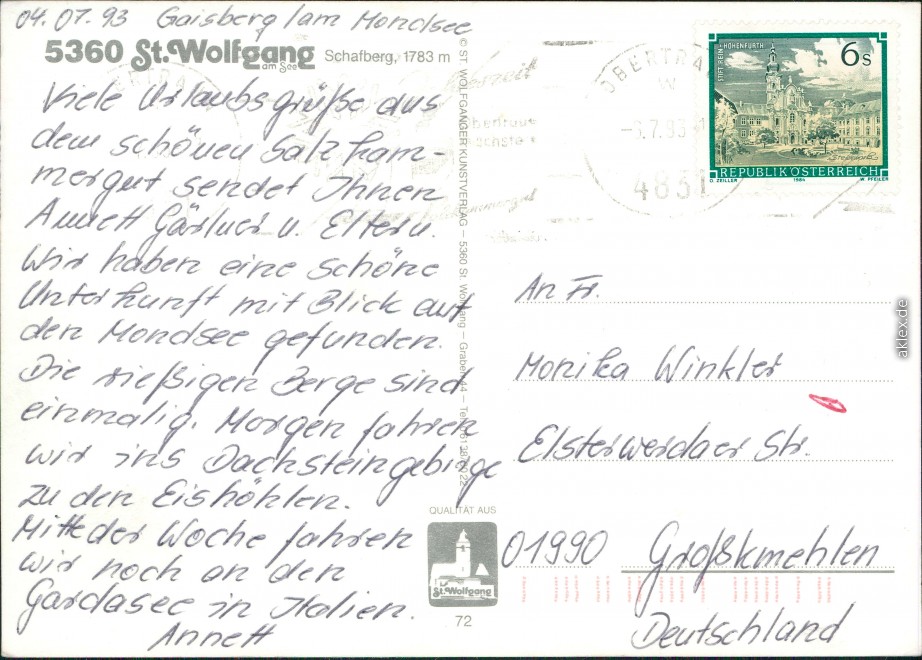 04.07.93 Gaisberg/am Mondsee
5360 St. Wolfgang
am See
Schafberg, 1783 m
Viele Urlaubsgrüße aus
dem schönen Salzkam-
mergut sendet Ihnen
Annett Gärtner u. Eltern.
Wir haben eine schöne
Unterkunft mit Blick auf
den Mondsee gefunden.
Die rießigen Berge sind
einmalig. Morgen fahren
wir ins Dachsteingebirge
zu den Eishöhlen.
Mitte der Woche fahren
wir noch an den
Gardasee in Italien.
Annett
© ST. WOLFGANGER KUNSTVERLAG — 5360 St. Wolfgang - Graben 44 — Tel.
QUALITÄT AUS
St. Wolfgang
72
OBERTRA
W
-6.7.93-1
4831
STIFT REIN-HOHENFURTH
6 S
REPUBLIK ÖSTERREICH
D. ZEILLER
1984
W. PFEILER
An Fr.
Monika Winkler
Elsterwerdaer Str.
01990 Großkmehlen
Deutschland
aklex.de